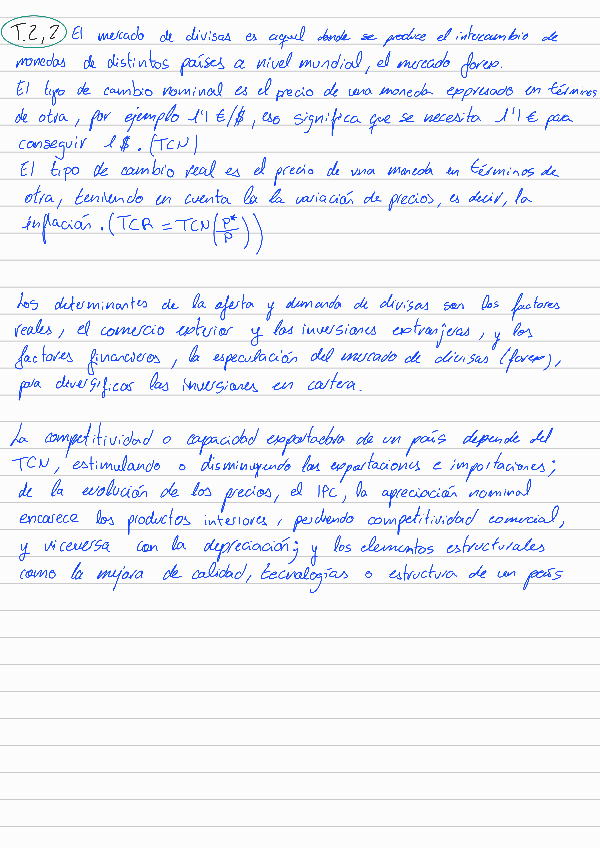 T.2,2 El mercado de divisas es aquel donde se produce el intercambio de
monedas de distintos países a nivel mundial, el mercado forex.
El tipo de cambio nominal es el precio de una moneda expresado en términos
de otra, por ejemplo 1'1 €/$, eso significa que se necesita 1'1 € para
conseguir 1 $. (TCN)
El tipo de cambio real es el precio de una moneda en términos de
otra, teniendo en cuenta la la variación de precios, es decir, la
inflación. (TCR = TCN(P*/P))
Los determinantes de la oferta y demanda de divisas son los factores
reales, el comercio exterior y las inversiones extranjeras, y los
factores financieros, la especulación del mercado de divisas (forex),
para diversificar las inversiones en cartera.
La competitividad o capacidad exportadora de un país depende del
TCN, estimulando o disminuyendo las exportaciones e importaciones;
de la evolución de los precios, el IPC, la apreciación nominal
encarece los productos interiores, perdiendo competitividad comercial,
y viceversa con la depreciación; y los elementos estructurales
como la mejora de calidad, tecnologías o estructura de un país